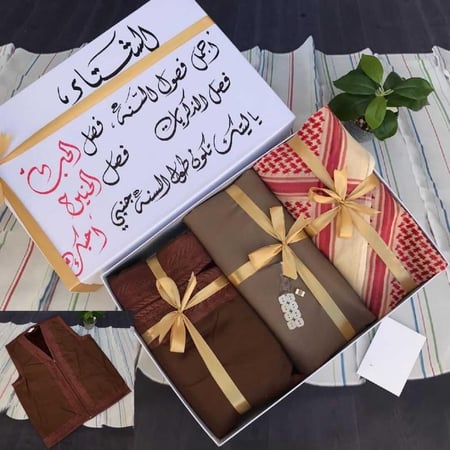 الشتاء،
أجمل فصول السنة، فصل الحب
فصل الذكريات فصل الحنين
ياليتك تكون طول السنة جنبي
أحبك